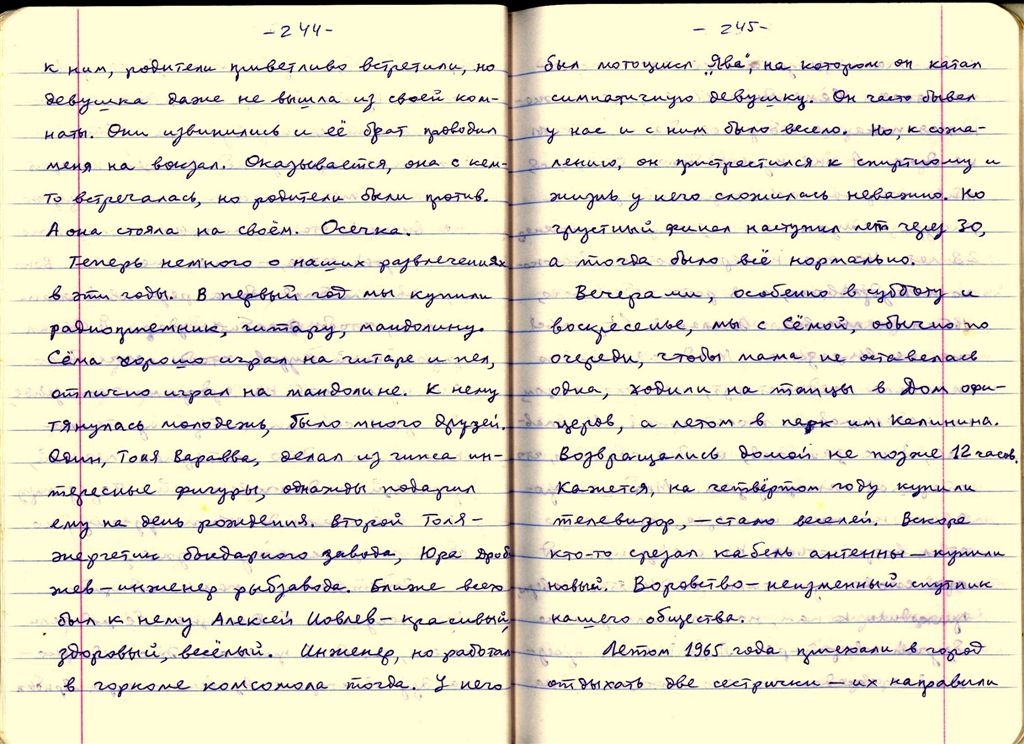 - 244 -
к ним, родители приветливо встретили, но
девушка даже не вышла из своей ком-
наты. Они извинились и её брат проводил
меня на вокзал. Оказывается, она с кем-
то встречалась, но родители были против.
А она стояла на своём. Осечка.
Теперь немного о наших развлечениях
в эти годы. В первый год мы купили
радиоприемник, гитару, мандолину.
Сёма хорошо играл на гитаре и пел,
отлично играл на мандолине. К нему
тянулась молодежь, было много друзей.
Один, Толя Варавва, делал из гипса ин-
тересные фигуры, однажды подарил
ему на день рождения. Второй Толя -
энергетик бондарного завода, Юра Дроб
жев - инженер рыбзавода. Ближе всех
был к нему Алексей Иовлев - красивый,
здоровый, весёлый. Инженер, но работал
в горкоме комсомола тогда. У него
- 245 -
был мотоцикл „Ява", на котором он катал
симпатичную девушку. Он часто бывал
у нас и с ним было весело. Но, к сожа-
лению, он пристрастился к спиртному и
жизнь у него сложилась неважно. Но
грустный финал наступил лет через 30,
а тогда было всё нормально.
Вечерами, особенно в субботу и
воскресенье, мы с Сёмой, обычно по
очереди, чтобы мама не оставалась
одна, ходили на танцы в Дом офи-
церов, а летом в парк им. Калинина.
Возвращались домой не позже 12 часов.
Кажется, на четвёртом году купили
телевизор, - стало веселей. Вскоре
кто-то срезал кабель антенны - купили
новый. Воровство - неизменный спутник
нашего общества.
Летом 1965 года, приехали в город
отдыхать две сестрички - их направили